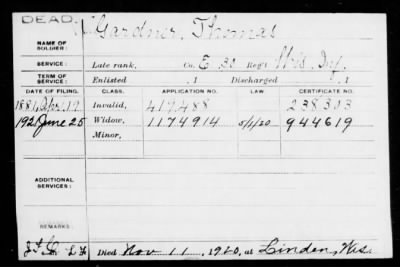 DEAD.
Gardner, Thomas
NAME OF SOLDIER:
SERVICE: Late rank, Co. E 30 Reg't Wis. Inf.
TERM OF SERVICE: Enlisted , 1 Discharged , 1
DATE OF FILING. CLASS. APPLICATION NO. LAW. CERTIFICATE NO.
1881, Apr. 19 Invalid, 417488 238303
1921 June 25 Widow, 1174914 5/1/20 944619
Minor,
ADDITIONAL SERVICES:
REMARKS:
Died Nov 11, 1920, at Linden, Wis.